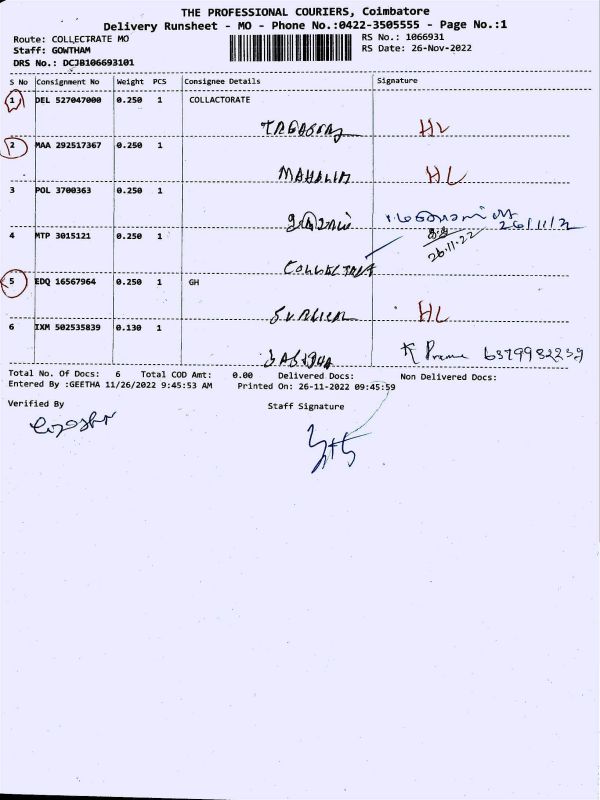 THE PROFESSIONAL COURIERS, Coimbatore
Delivery Runsheet - MO - Phone No.:0422-3505555 - Page No.:1
Route: COLLECTRATE MO
RS No.: 1066931
Staff: GOWTHAM
RS Date: 26-Nov-2022
DRS No.: DCJB106693101
S No Consignment No Weight PCS Consignee Details Signature
1 DEL 527047000 0.250 1 COLLACTORATE
HL
2 MAA 292517367 0.250 1
HL
3 POL 3700363 0.250 1
26/11/22
4 MTP 3015121 0.250 1
26.11.22
5 EDQ 16567964 0.250 1 GH
HL
6 IXM 502535839 0.130 1
K Prema 6379982239
Total No. Of Docs: 6 Total COD Amt: 0.00 Delivered Docs: Non Delivered Docs:
Entered By :GEETHA 11/26/2022 9:45:53 AM Printed On: 26-11-2022 09:45:59
Verified By Staff Signature